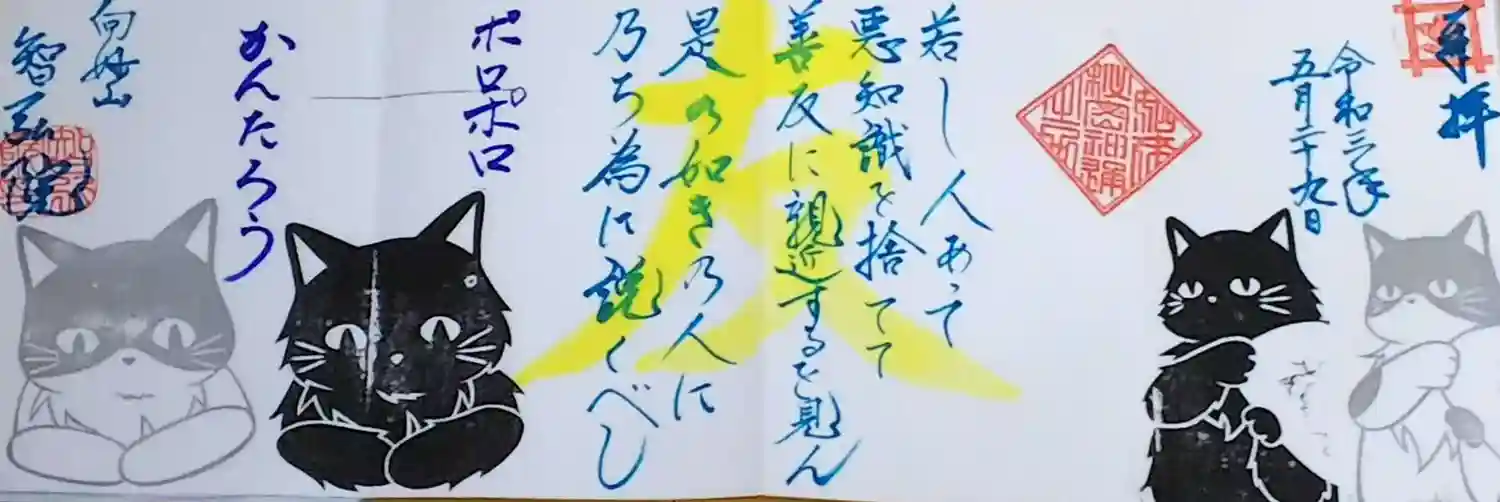 奉拝
令和三年
五月二十九日
友
若し人あって
悪知識を捨てて
善友に親近するを見ん
是の如き乃人に
乃ち為に説くべし
ポロポロ
かんたろう
向妙山
智弘院